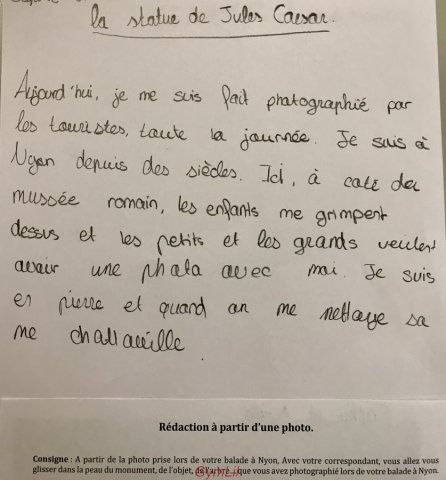 la statue de Jules Caesar.
Aujourd'hui, je me suis fait photographié par
les touristes, toute la journée. Je suis à
Nyon depuis des siècles. Ici, à coté du
mussée romain, les enfants me grimpent
dessus et les petits et les grands veulent
avoir une photo avec moi. Je suis
en pierre et quand on me nettoye sa
me chatouille.
Rédaction à partir d'une photo.
Consigne : A partir de la photo prise lors de votre balade à Nyon, Avec votre correspondant, vous allez vous
glisser dans la peau du monument, de l'objet, de l'arbre… que vous avez photographié lors de votre balade à Nyon.